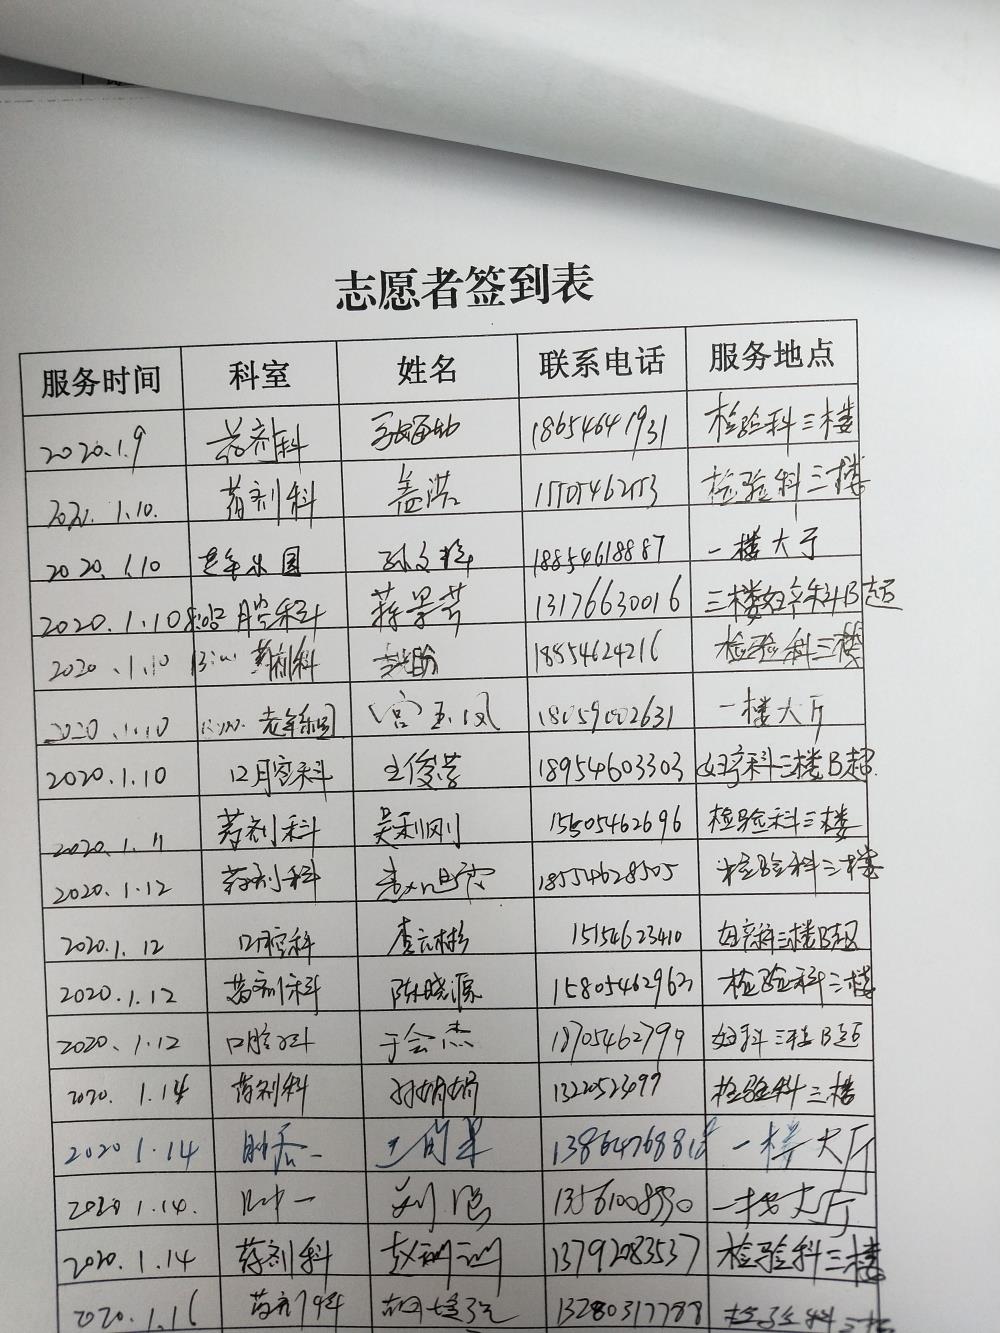 志愿者签到表
服务时间 科室 姓名 联系电话 服务地点
2020.1.9 药剂科 18654641931 检验科三楼
1.10. 药剂科 盖洪 15505462553 检验科三楼
2020.1.10 孙文 18854618887 一楼大厅
2020.1.10 口腔科 蒋景芳 13176630016 三楼妇产科B超
2020.1.10 药剂科 18554624216 检验科三楼
2020.1.10 宫玉凤 18059002631 一楼大厅
2020.1.10 口腔科 王俊芳 18954603303 妇产科三楼B超
2020.1.11 药剂科 吴利刚 15505462696 检验科三楼
2020.1.12 药剂科 18554628505 检验科三楼
2020.1.12 口腔科 李云彬 15154623410 妇产科三楼B超
2020.1.12 药剂科 陈晓源 检验科三楼
2020.1.12 口腔科 于会杰 18705462799 妇科三楼B超
2020.1.14 药剂科 孙娟娟 检验科三楼
2020.1.14 一楼大厅
2020.1.14. 刘 13561008930 一楼大厅
2020.1.14 药剂科 赵 13792083537 检验科三楼
2020.1.16 药剂科 13280317788 检验科三楼